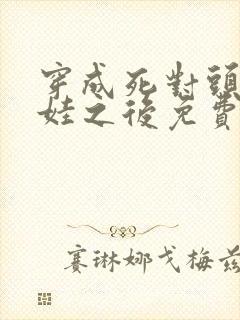 穿成死對頭
娃之後免費
賽琳娜戈梅茲